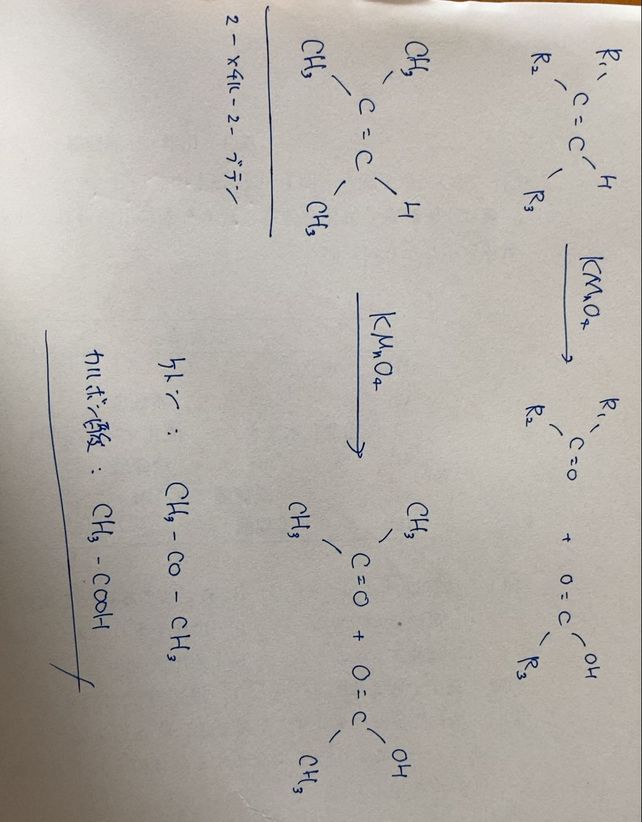 R₁ R₂ C=C H R₃ KMnO₄ → R₁ R₂ C=O + O=C OH R₃
CH₃ CH₃ C=C H CH₃ KMnO₄ → CH₃ CH₃ C=O + O=C OH CH₃
2-メチル-2-ブテン
ケトン: CH₃-CO-CH₃
カルボン酸: CH₃-COOH